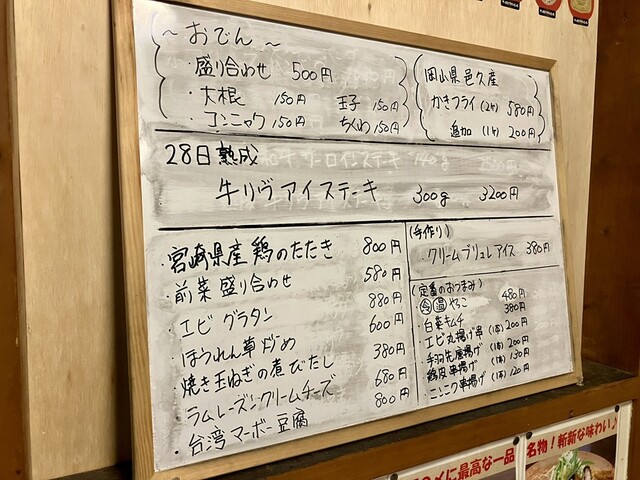 ～おでん～
・盛り合わせ 500円
・大根 150円 玉子 150円
・コンニャク 150円 ちくわ 150円
岡山県邑久産
かきフライ(2ヶ) 580円
追加(1ヶ) 200円
28日熟成
牛リヴアイステーキ 300g 3200円
・宮崎県産 鶏のたたき 800円
・前菜盛り合わせ 580円
・エビグラタン 880円
・ほうれん草炒め 600円
・焼き玉ねぎの煮びたし 380円
・ラムレーズンクリームチーズ 680円
・台湾マーボー豆腐 800円
(手作り)
・クリームブリュレアイス 380円
(定番のおつまみ)
・冷 温 やっこ 480円
・白菜キムチ 380円
・エビ丸揚げ串(1本) 200円
・手羽先唐揚げ(1本) 200円
・鶏皮串揚げ(1本) 130円
・ニンニク串揚げ(1本) 120円
〆に最高な一品
名物！斬新な味わい♪